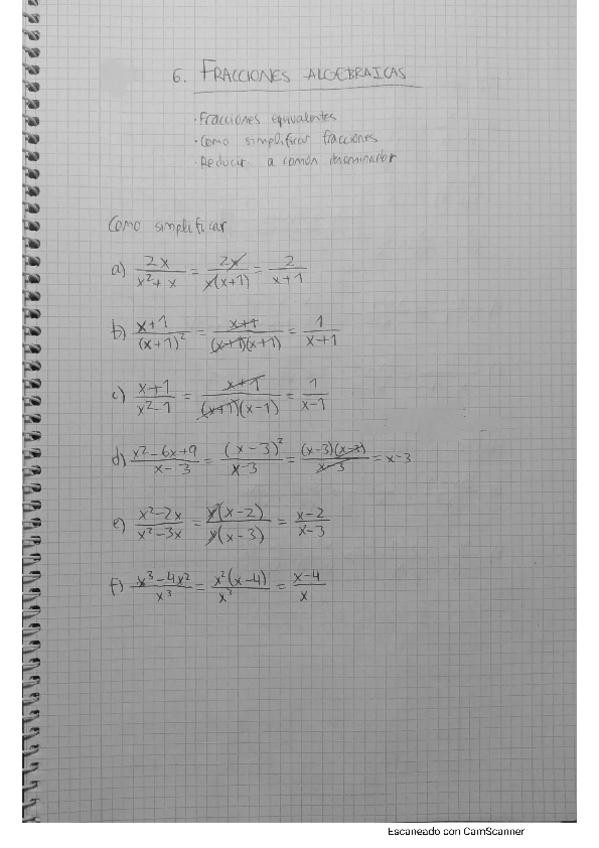 6. FRACCIONES ALGEBRAICAS
· Fracciones equivalentes
· Como simplificar fracciones
· Reducir a común denominador
Como simplificar
a) 2x/(x²+x) = 2x/(x(x+1)) = 2/(x+1)
b) (x+1)/(x+1)² = (x+1)/((x+1)(x+1)) = 1/(x+1)
c) (x+1)/(x²-1) = (x+1)/((x+1)(x-1)) = 1/(x-1)
d) (x²-6x+9)/(x-3) = (x-3)²/(x-3) = (x-3)(x-3)/(x-3) = x-3
e) (x²-2x)/(x²-3x) = x(x-2)/(x(x-3)) = (x-2)/(x-3)
f) (x³-4x²)/x³ = x²(x-4)/x³ = (x-4)/x
Escaneado con CamScanner